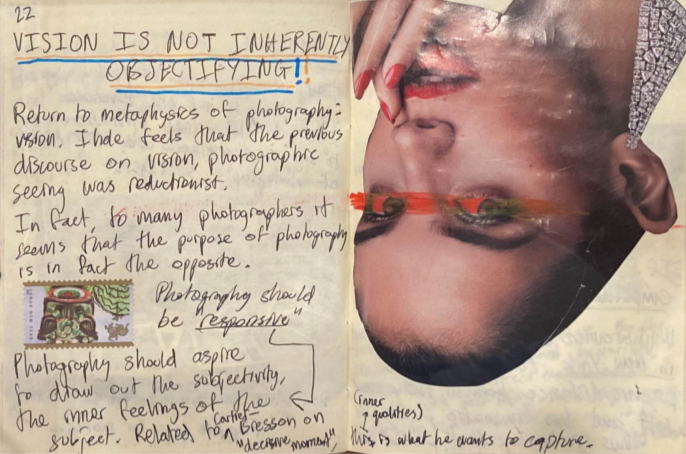 22
VISION IS NOT INHERENTLY
OBJECTIFYING!!
Return to metaphysics of photography:
vision. Ihde feels that the previous
discourse on vision, photographic
seeing was reductionist.
In fact, to many photographers it
seems that the purpose of photography
is in fact the opposite.
Photography should
be "responsive"
Photography should aspire
to draw out the subjectivity,
the inner feelings of the
subject. Related to Cartier-Bresson on
"decisive moment",
(inner
qualities)
this is what he wants to capture.